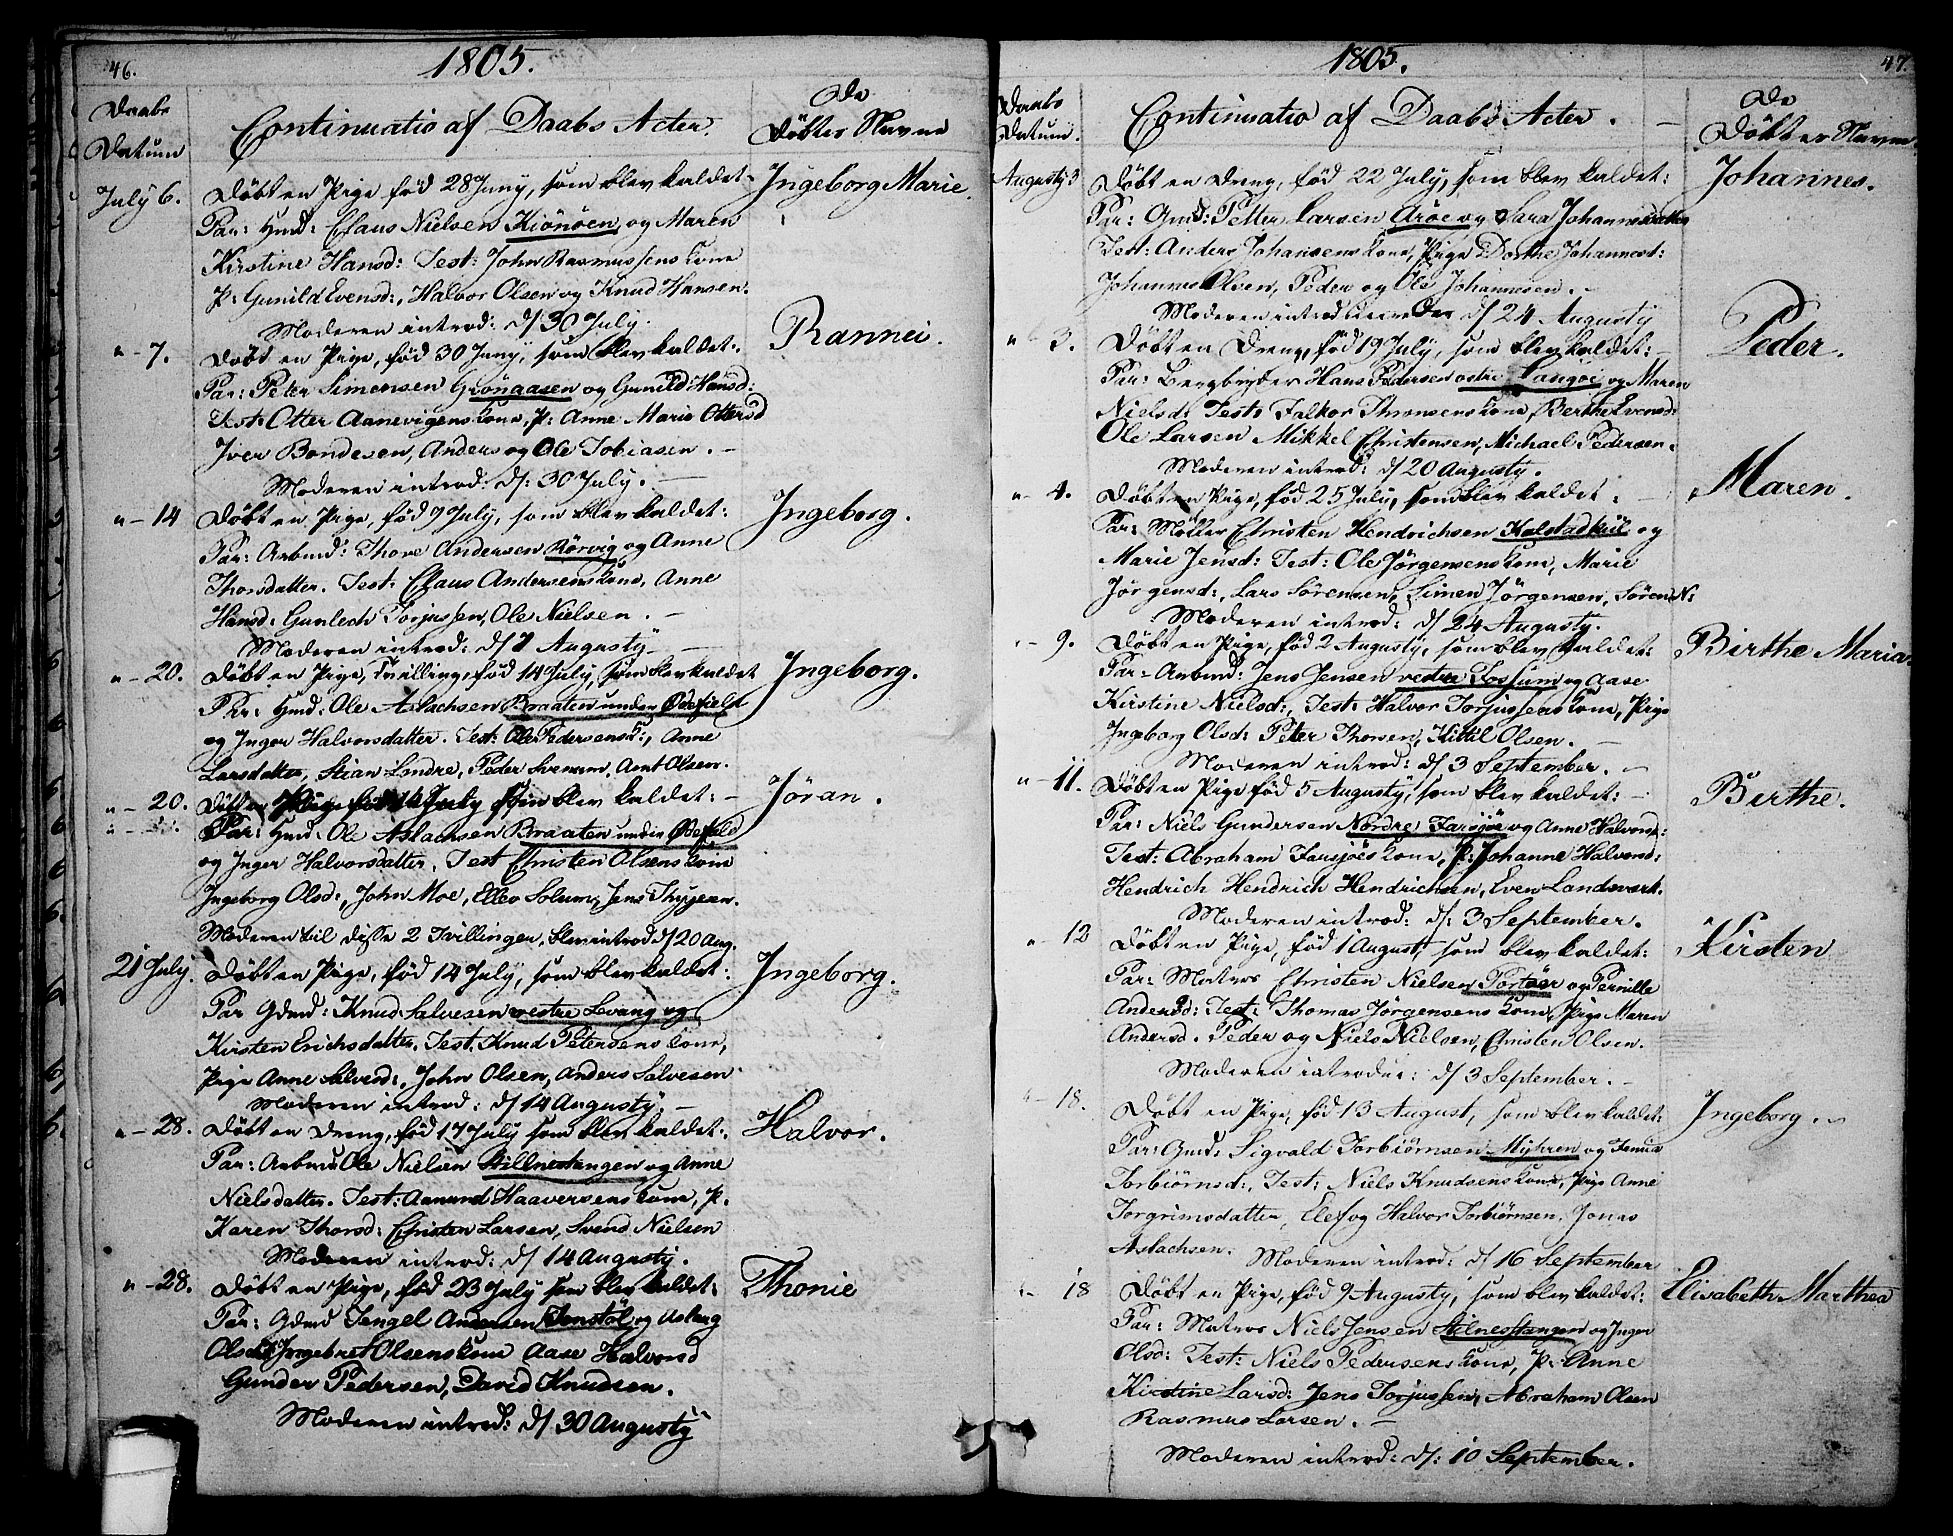 46.
1805.
Daabs
Datum
Continuatio af Daabs Acter.
De
Döbtes Navne
July 6.
Döbt en Pige fød 28 Juny, som blev kaldet
Ingeborg Marie
Par: Hmd: Claus Nielsen Kiönöen, og Maren
Kirstine Hansd: Test: John Rasmussens Kone
P: Gunild Evensd:, Halvor Olsen og Knud Hansen.
Moderen introd: d/ 30 July.
" - 7.
Döbt en Pige, fød 30 Juny, som blev kaldet:
Rannei.
Par: Peter Simensen Grönaasen og Gunild Hansd:
Test: Otter Aanevigens Kone, P: Anne Marie Ottersd
Iver Bondesen, Anders og Ole Tobiasen. -
Moderen introd: d/: 30 July. -
" - 14
Döbt en Pige, fød 9 July, som blev kaldet:
Ingeborg.
Par: Arbmd: Thore Andersen Rörvig og Anne
Thorsdatter. Test: Claus Andersens Kone, Anne
Hansd: Gunlech Torjussen, Ole Nielsen. -
Moderen introd: d/ 7 Augusty -
" - 20.
Döbt en Pige, Tvilling, fød 14 July, som blev kaldet
Ingeborg.
Par: Hmd: Ole Aslachsen Braaten under Ödefield
og Inger Halvorsdatter. Test: Ole Pedersens K:, Anne
Larsdatter, Stian Londre, Peder Svensen, Arnt Olsen.
" - 20.
Döbt en Pige fød 14 July som blev kaldet: -
Jöran.
Par: Hmd: Ole Aslachsen Braaten under Ödefield
og Inger Halvorsdatter. Test Christen Olsens Kone
Ingeborg Olsd:, John Moe, Ellev Solum, Jens Thygesen.
Moderen til disse 2 Tvillinger, blev introd d/ 20 Aug.
21 July.
Döbt en Pige, fød 14 July, som blev kaldet:
Ingeborg.
Par Gdmd: Knud Salvesen vestre Levang og
Kirsten Erichsdatter. Test. Knud Petersens Kone,
Pige Anne Salvesd:, John Olsen, Anders Salvesen
Moderen introd: d/ 14 Augusty. -
" - 28.
Döbt en Dreng, fød 17 July som blev kaldet:
Halvor.
Par: Arbmd Ole Nielsen Stillnestangen og Anne
Nielsdatter. Test: Aamund Haaversens Kone, P.
Karen Thorsd: Christen Larsen, Svend Nielsen
Moderen introd: d/ 14 Augusty.
" - 28.
Döbt en Pige, fød 23 July som blev kaldet:
Thonie
Par: Gdmd Tengel Andersen Tonstöl og Aslaug
Olsd: Ingebret Olsens Kone Aase Halvorsd
Gunder Pedersen, David Knudsen.
Moderen introd: d/ 30 Augusty
1805.
47.
Daabs
Datum.
Continuatio af Daabs Acter. -
De
Döbtes Navne
Augusty 3
Döbt en Dreng, fød 22 July, som blev kaldet:
Johannes.
Par: Petter Larsen Aröe og Sara Johannesdatter
Test: Anders Johansens Kone, Pige Dorthe Johannesd:
Johannes Olsen, Peder og Ole Johannesen. -
Moderen introduceredes d/ 24 Augusty
" - 3.
Döbt en Dreng, fød 19 July, som blev kaldet:
Peder.
Par: Bergbryder Hans Pedersen ostre Langöe og Maren
Nielsd: Test: Falkor Thronsens Kone, Berthe Evensd:
Ole Larsen Mikkel Christensen, Michael Pedersen.
Moderen introd: d/ 20 Augusty.
" - 4.
Döbt en Pige, fød 25 July, som blev kaldet:
Maren.
Par: Möller Christen Hendrichsen Kalstadkiil og
Marie Jensd: Test: Ole Jörgensens Kone, Marie
Jörgensd:, Lars Sörensen, Simen Jörgensen, Sören N:
Moderen introd: d/ 24 Augusty.
" - 9.
Döbt en Pige, fød 2 Augusty, som blev kaldet:
Birthe Maria
Par: Arbmd: Jens Jensen vestre Fossum og Aase
Kirstine Nielsd:, Test: Halvor Torjussens Kone, Pige
Ingeborg Olsd: Peter Thorsen, Kittil Olsen. -
Moderen introd: d/ 3 September. -
" - 11.
Döbt en Pige fød 5 Augusty, som blev kaldet: -
Birthe.
Par: Niels Gundersen Nordre Farsjöe og Anne Halvorsd:
Test: Abraham Farsjöes Kone, P: Johanne Halvorsd:
Hendrich Hendrich Hendrichsen, Even Landsverk.
Moderen introd: d/: 3 September.
" - 12
Döbt en Pige, fød 1 August, som blev kaldet:
Kirsten
Par: Matros Christen Nielsen Portöer og Pernille
Andersd: Test: Thomas Jörgensens Kone, Pige Maren
Andersd. Peder og Niels Nielsen, Christen Olsen.
Moderen introduc: d/ 3 September. -
" - 18.
Döbt en Pige, fød 13 August, som blev kaldet:
Ingeborg. -
Par: Gmd: Sigvald Torbiörnsen Myhren og
Torbiörnsd:, Test: Niels Knudsens Kone, Pige Anne
Torgrimsdatter, Elef og Halvor Torbiörnsen, Jonas
Aslachsen. Moderen introd: d/ 16 September
" - 18
Döbt en Pige, fød 9 Augusty, som blev kaldet:
Elisabeth Marthea
Par: Matros Niels Jensen Stilnestangen og Inger
Olsd: Test: Niels Pedersens Kone, P: Anne
Kirstine Larsd: Jens Torjussen, Abraham Olsen
Rasmus Larsen. -
Moderen introd: d/: 10 September.